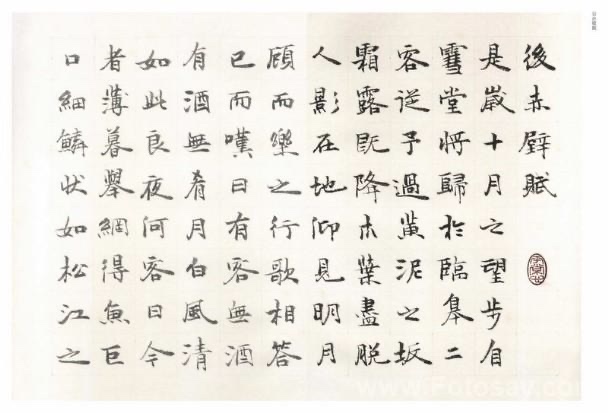 後赤壁賦
是歲十月之望步自
雪堂將歸於臨皋二
客從予過黃泥之坂
霜露既降木葉盡脫
人影在地仰見明月
顧而樂之行歌相答
已而嘆曰有客無酒
有酒無肴月白風清
如此良夜何客曰今
者薄暮舉網得魚巨
口細鱗狀如松江之
www.Fotosay.com